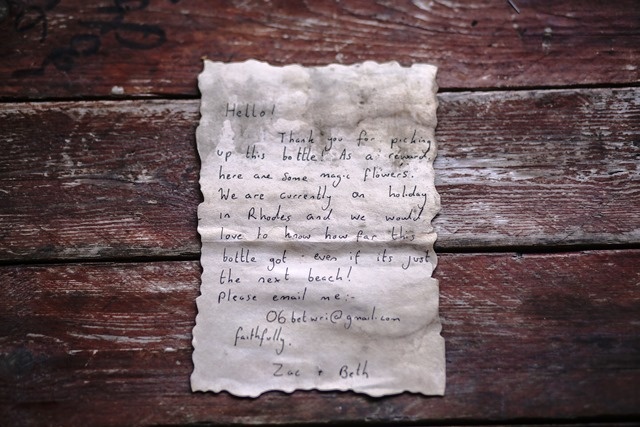 Hello!
Thank you for picking
up this bottle! As a reward,
here are some magic flowers.
We are currently on holiday
in Rhodes and we would
love to know how far this
bottle got - even if its just
the next beach!
Please email me:-
06.betwri@gmail.com
faithfully,
Zac + Beth